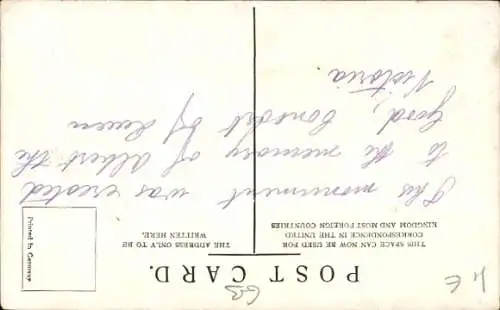 POST CARD.
THIS SPACE CAN NOW BE USED FOR
CORRESPONDENCE IN THE UNITED
KINGDOM AND MOST FOREIGN COUNTRIES
THE ADDRESS ONLY TO BE
WRITTEN HERE.
Printed in Germany
This monument was created
to the memory of Albert the
Good, Consort by Queen
Victoria